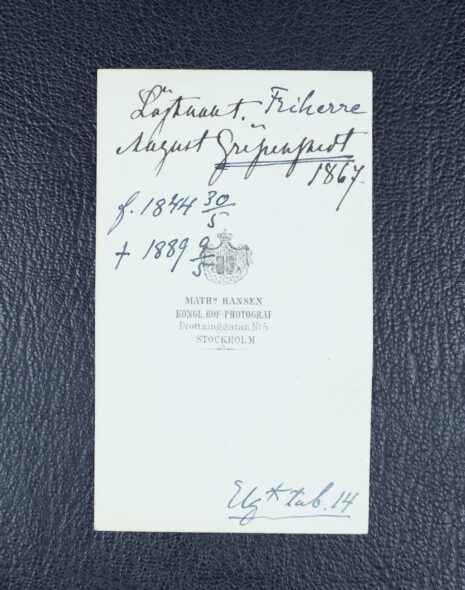 Löjtnant. Friherre
August Gripenstedt
1867.
f. 1844 30/5
† 1889 9/5
MATHS HANSEN
KONGL. HOF-PHOTOGRAF
Drottninggatan No 5
STOCKHOLM
tab. 14